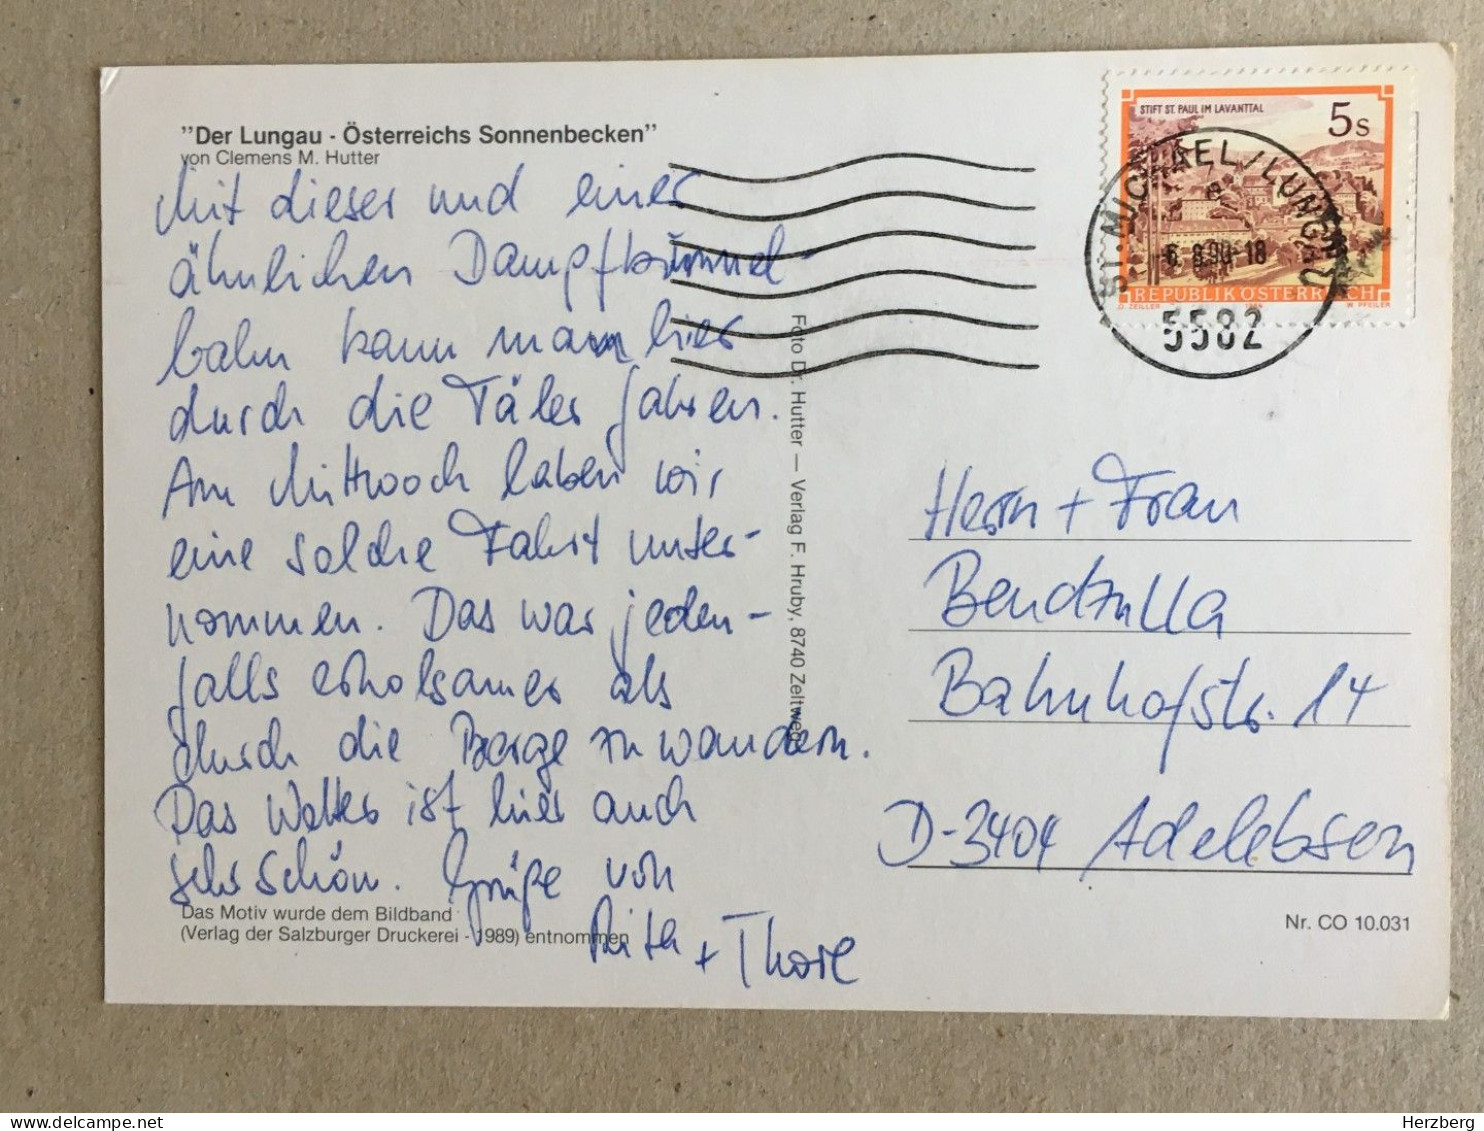 "Der Lungau - Österreichs Sonnenbecken"
von Clemens M. Hutter
Mit dieser und einer
ähnlichen Dampfbummel-
bahn kann man hier
durch die Täler fahren.
Am Mittwoch haben wir
eine solche Fahrt unter-
nommen. Das war jeden-
falls erholsamer als
durch die Berge zu wandern.
Das Wetter ist hier auch
sehr schön. Grüße von
Rita + Thore
Das Motiv wurde dem Bildband
(Verlag der Salzburger Druckerei - 1989) entnommen
Foto Dr. Hutter — Verlag F. Hruby, 8740 Zeltweg
STIFT ST. PAUL IM LAVANTTAL
5s
REPUBLIK ÖSTERREICH
O. ZEILLER 1984 W. PFEILER
ST. MICHAEL/LUNGAU
6. 8.90-18
5582
Herrn + Frau
Bendzulla
Bahnhofstr. 14
D-3404 Adelebsen
Nr. CO 10.031
Herzberg